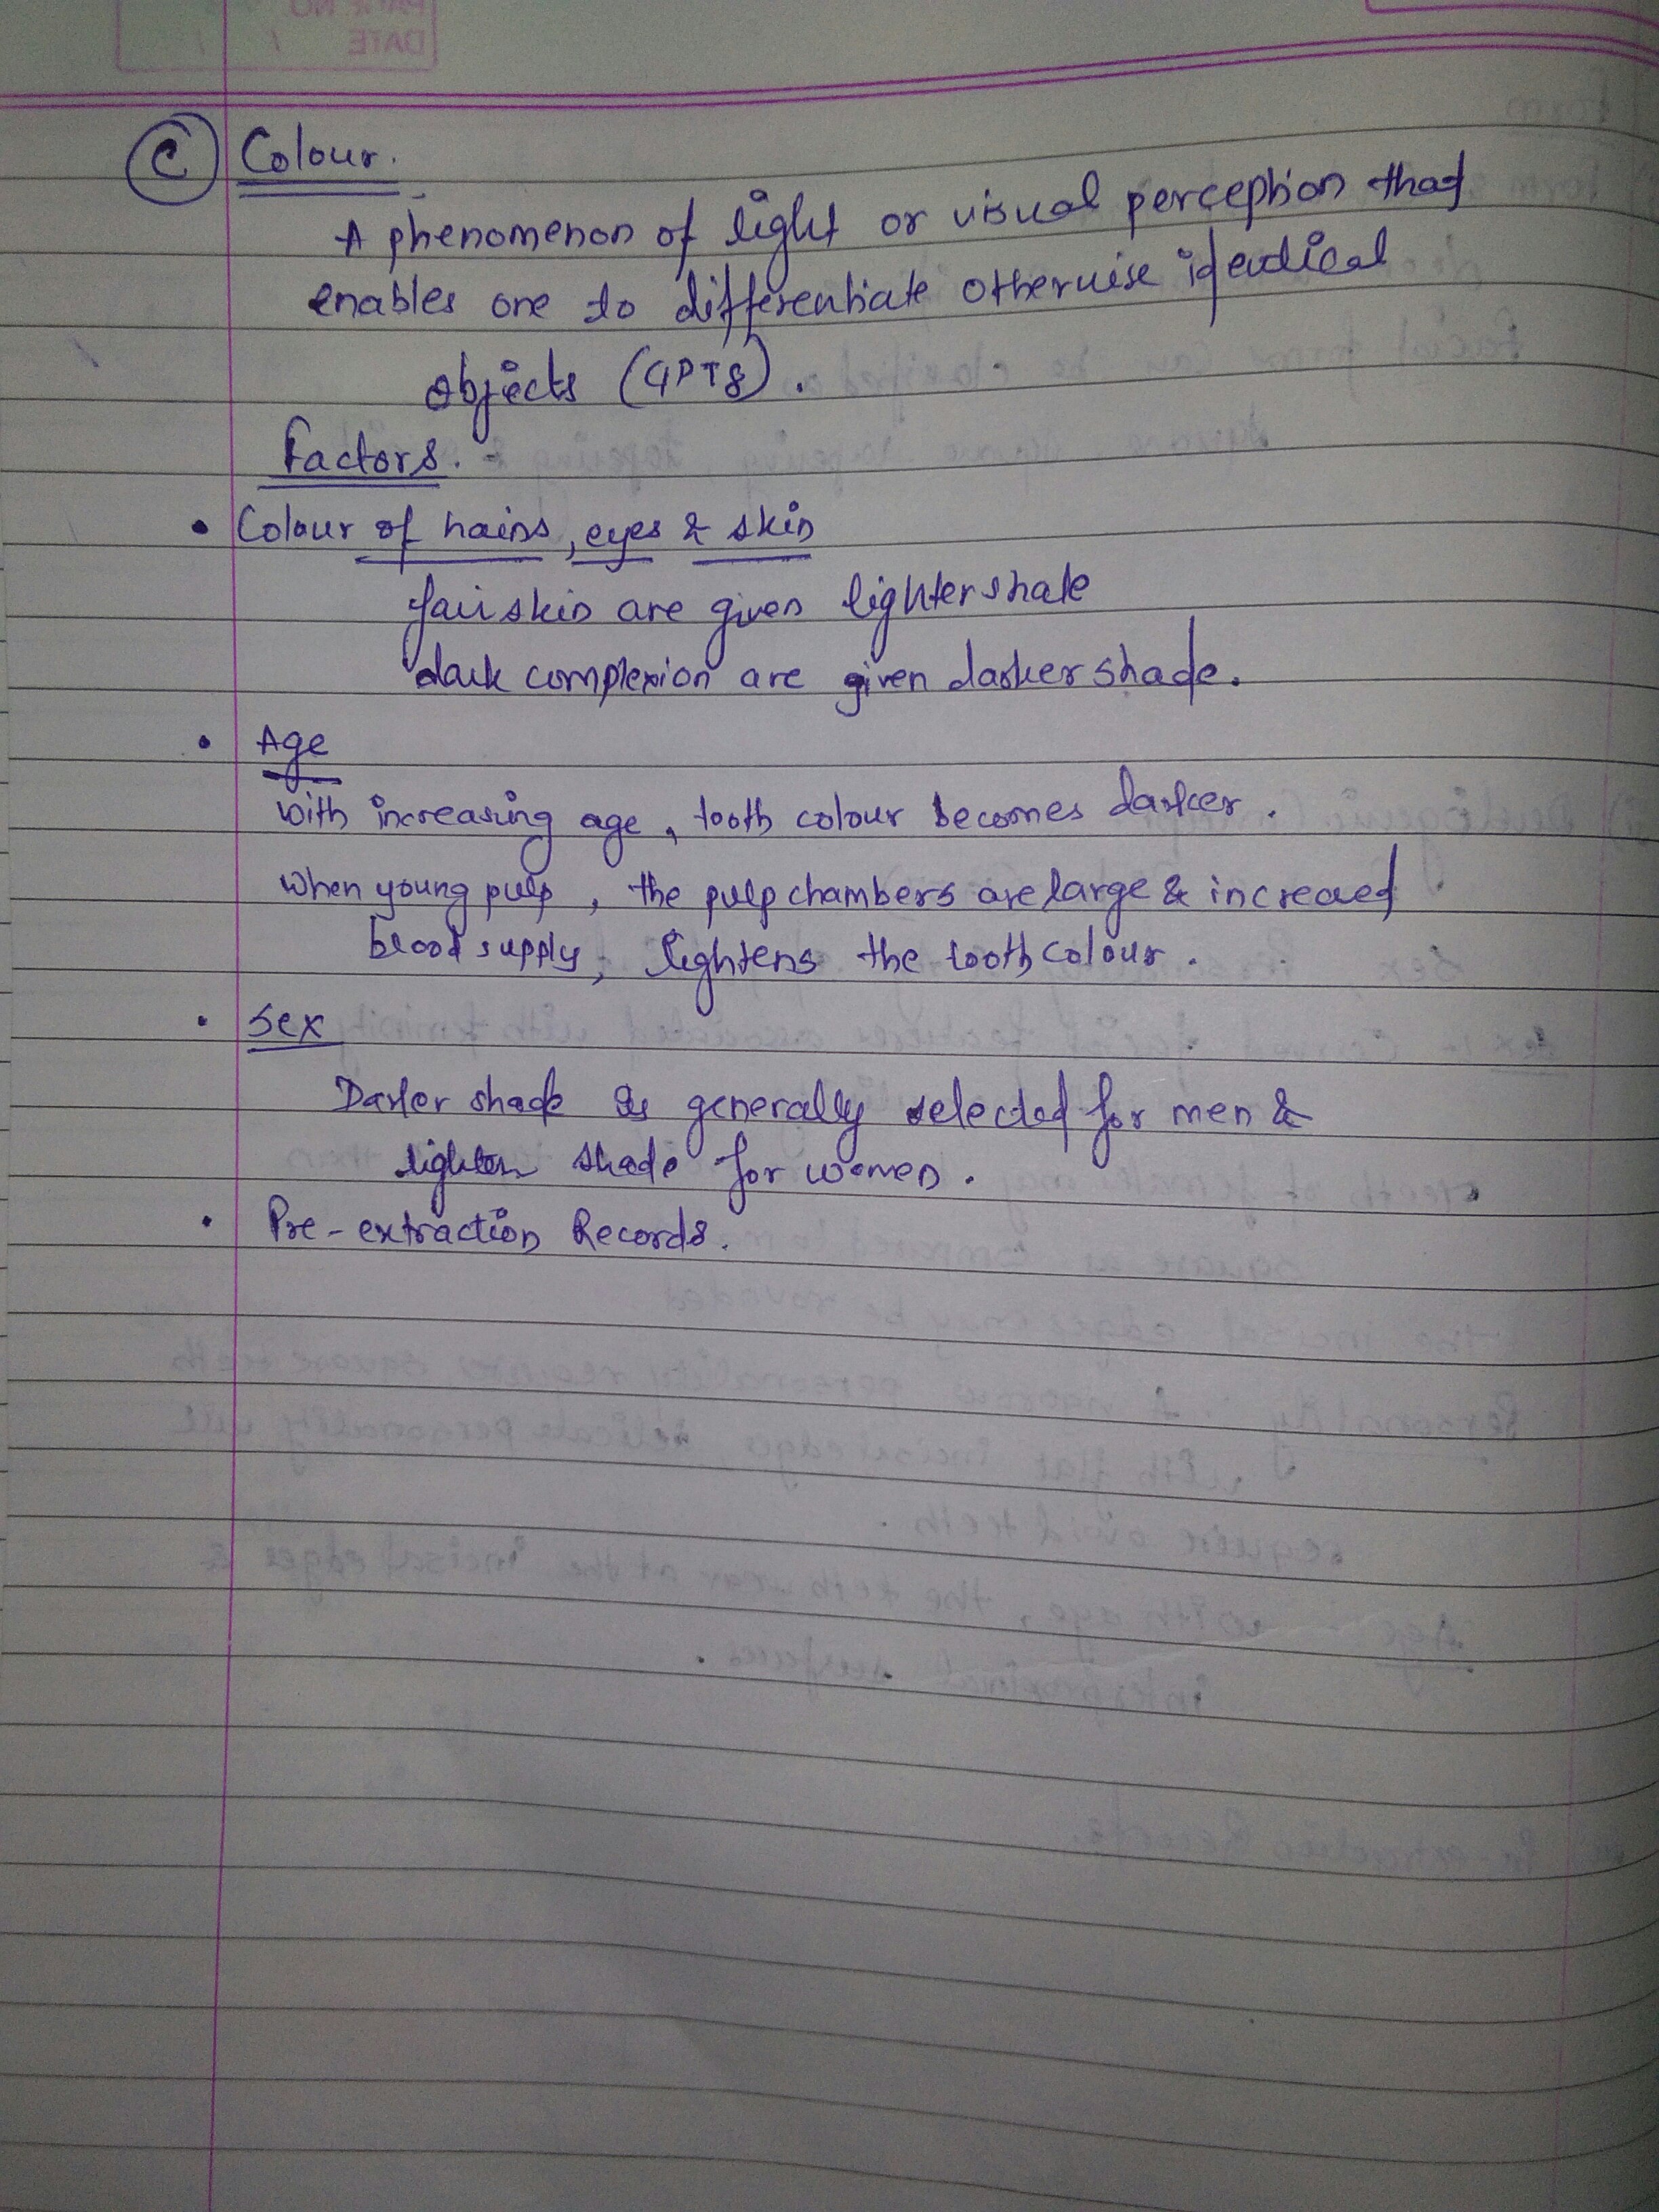 C Colour.
A phenomenon of light or visual perception that
enables one to differentiate otherwise identical
objects (GPT8).
Factors. -
• Colour of hairs, eyes & skin
fair skin are given lighter shade
dark complexion are given darker shade.
• Age
with increasing age, tooth colour becomes darker.
When young pulp, the pulp chambers are large & increased
blood supply, lightens the tooth colour.
• Sex
Darker shade is generally selected for men &
lighter shade for women.
• Pre-extraction Records.